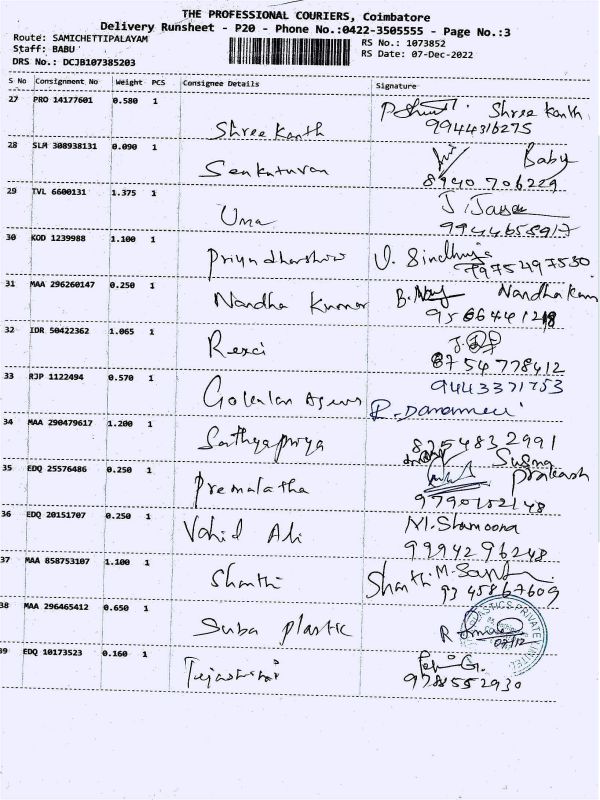 THE PROFESSIONAL COURIERS, Coimbatore
Delivery Runsheet - P20 - Phone No.:0422-3505555 - Page No.:3
Route: SAMICHETTIPALAYAM
RS No.: 1073852
Staff: BABU
RS Date: 07-Dec-2022
DRS No.: DCJB107385203
S No Consignment No Weight PCS Consignee Details Signature
27 PRO 14177601 0.580 1
Shree Kanth
Shree Kanth
9944316275
28 SLM 308938131 0.090 1
Senkaturan
Baby
8940 706229
29 TVL 6600131 1.375 1
Uma
J. 
9944655917
30 KOD 1239988 1.100 1
Priyadharshini
V. Sindhuja
7975497530
31 MAA 296260147 0.250 1
Nandha Kumar
Nandha Kum
32 IDR 50422362 1.065 1
Rexci
8754 778412
33 RJP 1122494 0.570 1
9443371753
34 MAA 290479617 1.200 1
Sathyapriya
8254832991
35 EDQ 25576486 0.250 1
Premalatha
Prakash
9790152148
36 EDQ 20151707 0.250 1
Vahid Ali
M. Shamoona
9994296248
37 MAA 858753107 1.100 1
Shanthi
Shanthi
93 45867609
38 MAA 296465412 0.650 1
Suba plastic
R
07/12
39 EDQ 10173523 0.160 1
9781552930